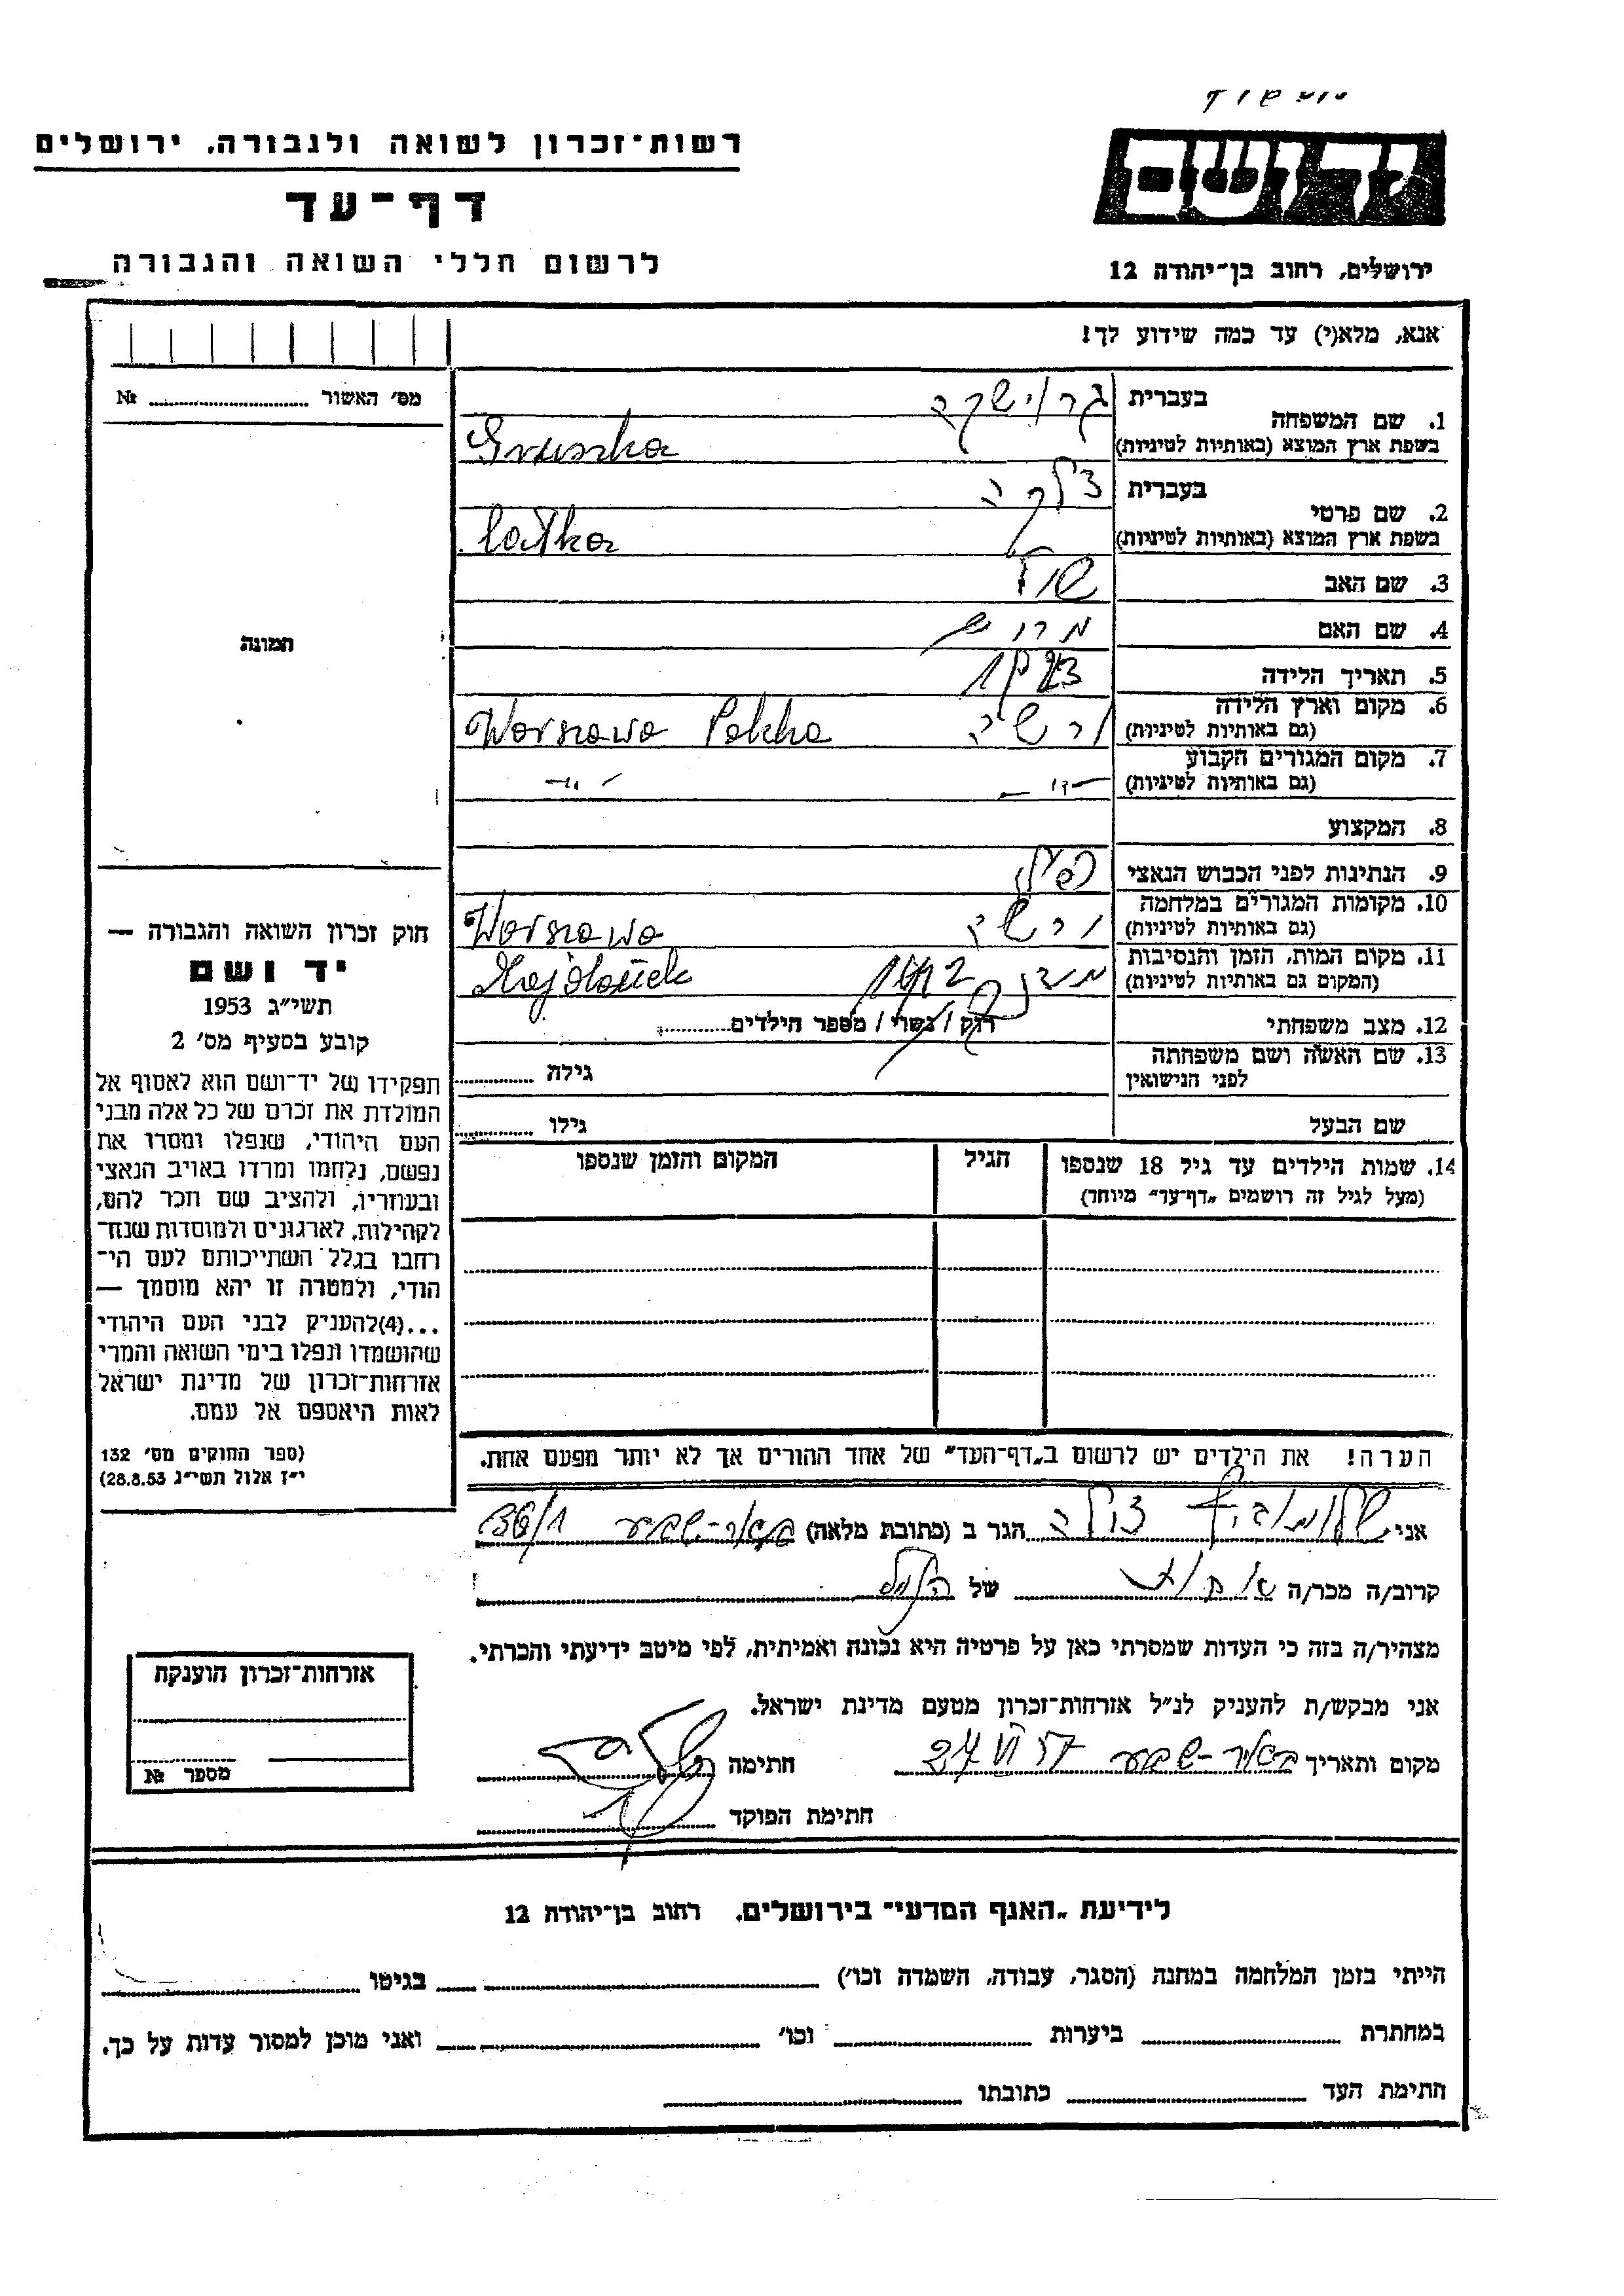 רשות־זכרון לשואה ולגבורה, ירושלים
דף־עד
לרשום חללי השואה והגבורה
יד ושם
ירושלים, רחוב בן־יהודה 12
אנא, מלא(י) עד כמה שידוע לך!
מס׳ האשור № ..........
1. שם המשפחה בעברית גרושקה
בשפת ארץ המוצא (באותיות לטיניות) Gruszka
2. שם פרטי בעברית
בשפת ארץ המוצא (באותיות לטיניות)
3. שם האב
4. שם האם
5. תאריך הלידה
6. מקום וארץ הלידה ורשה Warszawa Polska
(גם באותיות לטיניות)
7. מקום המגורים הקבוע
(גם באותיות לטיניות) –״– –״–
8. המקצוע
9. הנתינות לפני הכבוש הנאצי
10. מקומות המגורים במלחמה ורשה Warszawa
(גם באותיות לטיניות)
11. מקום המות, הזמן והנסיבות 1942 Majdanek
(המקום גם באותיות לטיניות)
12. מצב משפחתי רוק / נשוי / מספר הילדים..........
13. שם האשה ושם משפחתה
לפני הנישואין גילה ..........
שם הבעל גילו ..........
14. שמות הילדים עד גיל 18 שנספו הגיל המקום והזמן שנספו
(מעל לגיל זה רושמים „דף־עד״ מיוחד)
הערה! את הילדים יש לרשום ב„דף־העד״ של אחד ההורים אך לא יותר מפעם אחת.
תמונה
חוק זכרון השואה והגבורה —
יד ושם
תשי״ג 1953
קובע בסעיף מס׳ 2
תפקידו של יד־ושם הוא לאסוף אל
המולדת את זכרם של כל אלה מבני
העם היהודי, שנפלו ומסרו את
נפשם, נלחמו ומרדו באויב הנאצי
ובעוזריו, ולהציב שם וזכר להם,
לקהילות, לארגונים ולמוסדות שנח־
רחבו בגלל השתייכותם לעם הי־
הודי, ולמטרה זו יהא מוסמך —
...(4)להעניק לבני העם היהודי
שהושמדו ונפלו בימי השואה והמרי
אזרחות־זכרון של מדינת ישראל
לאות היאספם אל עמם.
(ספר החוקים מס׳ 132
י״ז אלול תשי״ג 28.8.53)
אני הגר ב (כתובת מלאה) באר-שבע 36/1
קרוב/ה מכר/ה אחות של
מצהיר/ה בזה כי העדות שמסרתי כאן על פרטיה היא נכונה ואמיתית, לפי מיטב ידיעתי והכרתי.
אני מבקש/ת להעניק לנ״ל אזרחות־זכרון מטעם מדינת ישראל.
מקום ותאריך באר-שבע 24 VI 57 חתימה
חתימת הפוקד
אזרחות־זכרון הוענקה
מספר №
לידיעת „האגף המדעי״ בירושלים, רחוב בן־יהודה 12
הייתי בזמן המלחמה במחנה (הסגר, עבודה, השמדה וכו׳) .......... בגיטו ..........
במחתרת .......... ביערות .......... וכו׳ .......... ואני מוכן למסור עדות על כך.
חתימת העד .......... כתובתו ..........